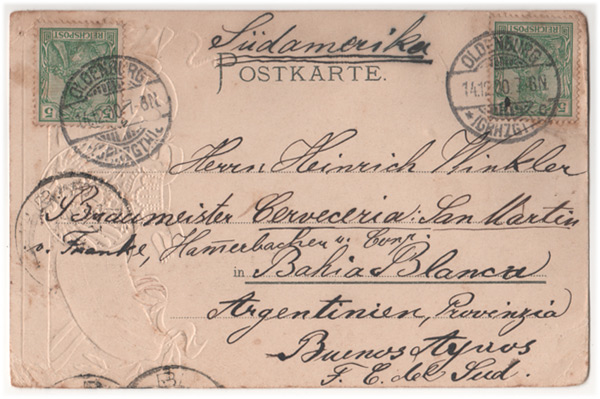 Südamerika
POSTKARTE.
REICHSPOST 5
REICHSPOST 5
OLDENBURG
OLDENBURG
14.12.00
*(GRHZGTH)*
Herrn Heinrich Winkler
Braumeister Cerveceria: San Martin
v. Franke, Hamerbacher u. Comp.
in Bahia Blanca
Argentinien, Provinzia
Buenos Ayros
F. C. del Sud.